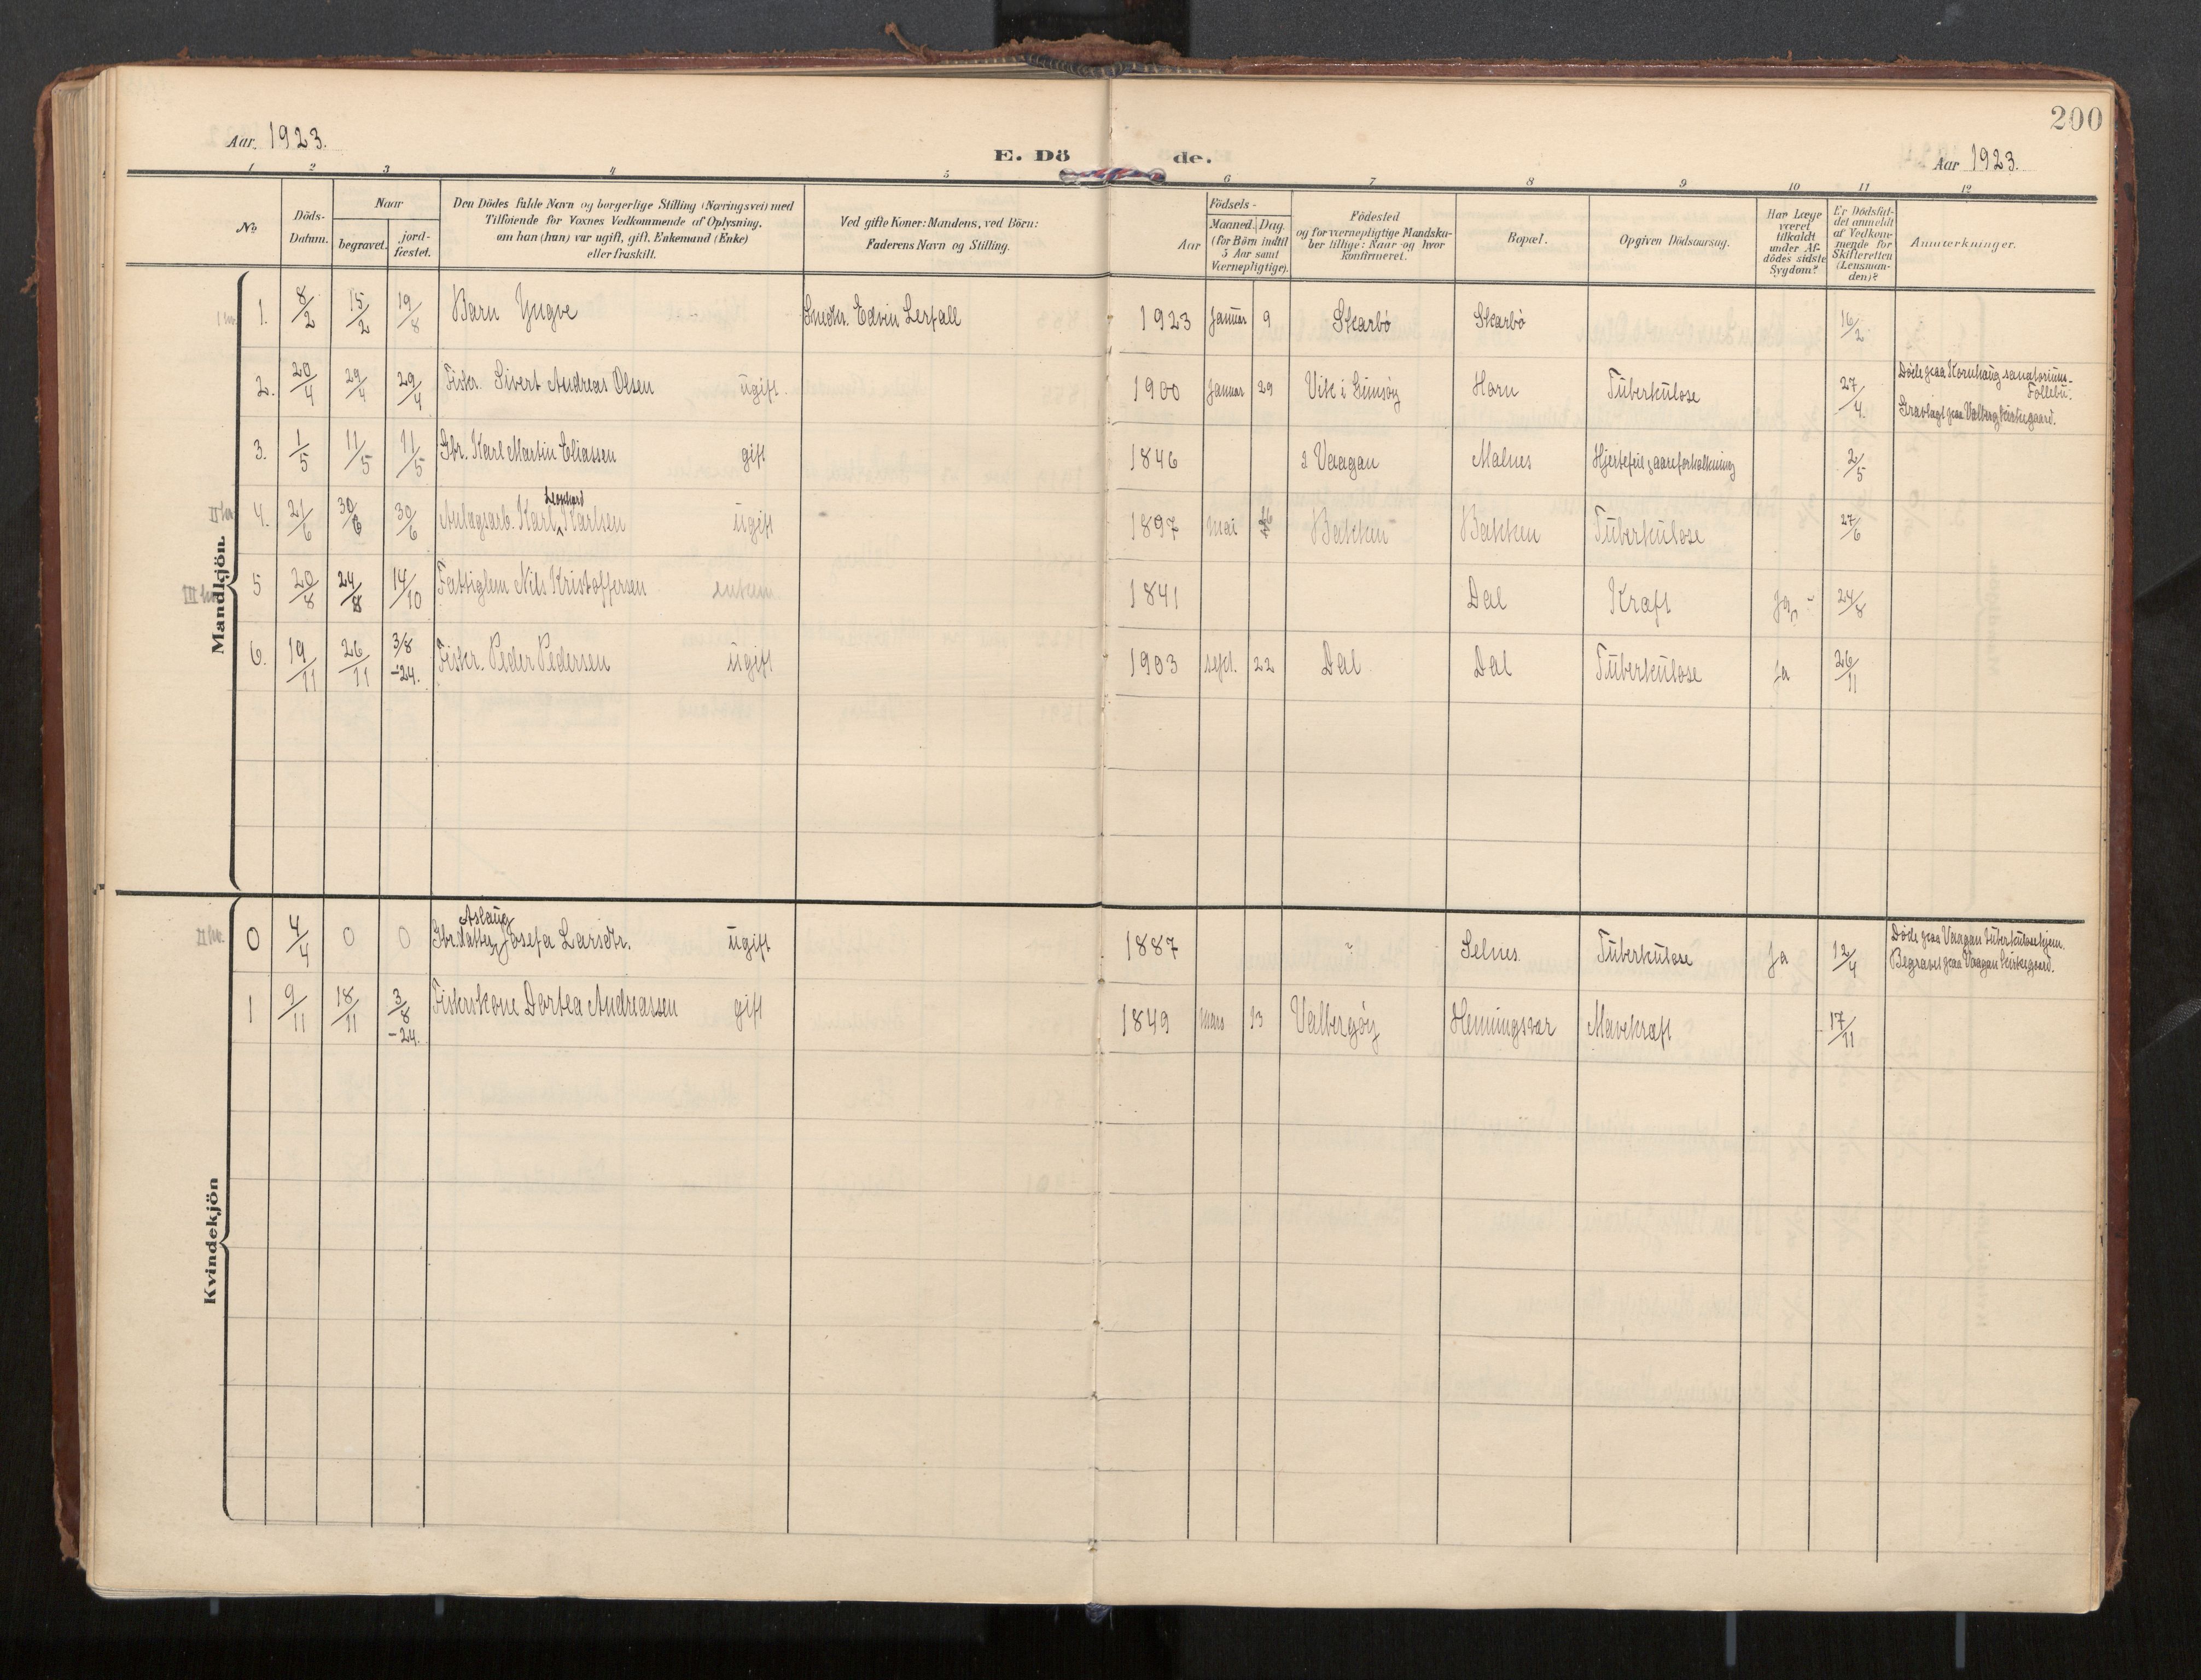 200
Aar. 1923.
E. Dö de.
Aar 1923.
1 2 3 4 5 6 7 8 9 10 11 12
No
Döds-Datum.
Naar
begravet.
jord-fæstet.
Den Dödes fulde Navn og borgerlige Stilling (Næringsvei) med
Tilföiende for Voxnes Vedkommende af Oplysning,
om han (hun) var ugift, gift, Enkemand (Enke)
eller fraskilt.
Ved gifte Koner: Mandens, ved Börn:
Faderens Navn og Stilling.
Födsels-
Aar
Maaned. Dag.
(for Börn indtil
5 Aar samt
Værnepligtige).
Födested
og for værnepligtige Mandska-
ber tillige: Naar og hvor
konfirmeret.
Bopæl.
Opgiven Dödsaarsag.
Har Læge
været
tilkaldt
under Af-
dödes sidste
Sygdom?
Er Dödsfal-
det anmeldt
af Vedkom-
mende for
Skifteretten
(Lensman-
den)?
Anmærkninger.
Mandkjön.
1. 8/2 15/2 19/8 Barn Yngve Snedkr. Edvin Lerfall 1923 Januar 9 Skarbö Skarbö 16/2
2. 20/4 29/4 29/4 Fiskr. Sivert Andreas Olsen ugift. 1900 Januar 29 Vik i Gimsöy Horn Tuberkulose 27/4 Döde paa Kornhaug sanatorium-
Follebu.
Gravlagt paa Valberg kirkegaard.
3. 1/5 11/5 11/5 Gbr. Karl Martin Eliassen gift 1846 Vaagan Malnes Hjertefeil, aareforkalkning 2/5
II kv. 4. 21/6 30/6 30/6 Anlagsarb. Karl Leonhard Karlsen ugift 1897 mai Bakken Bakken Tuberkulose 27/6
III kv. 5 20/8 24/8 14/10 Fattiglem Nils Kristoffersen enkem 1841 Dal Kræft Ja 24/8
6. 19/11 26/11 3/8 -24. Fiskr. Peder Pedersen ugift 1903 sept. 22 Dal Dal Tuberkulose Ja 26/11
Kvindekjön
II kv. 0 4/4 0 0 Gbr.datter Aslaug Josefa Larsdtr. ugift 1887 Selnes. Tuberkulose Ja 12/4 Döde paa Vaagan tuberkulosehjem.
Begravet paa Vaagan kirkegaard.
1 9/11 18/11 3/8 -24. Fiskerskone Dortea Andreassen gift 1849 Mars 13 Valbergöy Henningsvær Mavekræft 17/11